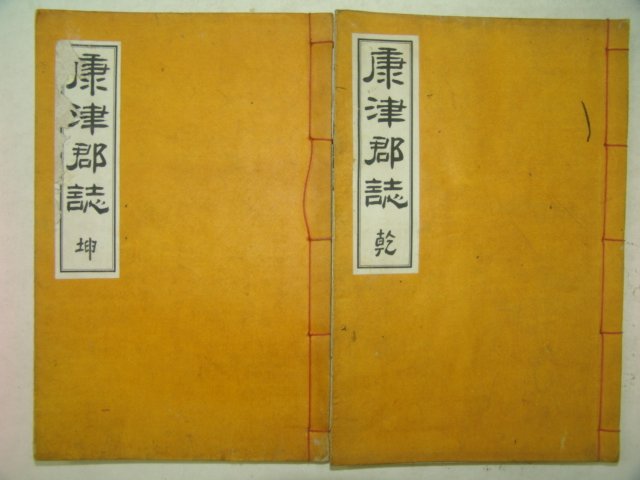 康津郡誌 乾
康津郡誌 坤